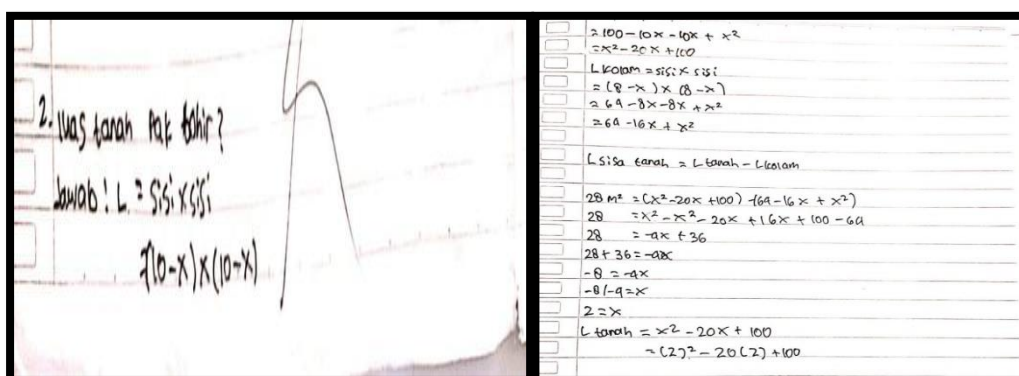 2. luas tanah Pak Tohir?
Jawab : L = sisi x sisi
=(10-x)x(10-x)
= 100 - 10x - 10x + x²
= x² - 20x + 100
L kolam = sisi x sisi
= (8-x) x (8-x)
= 64 - 8x - 8x + x²
= 64 - 16x + x²
L sisa tanah = L tanah - L kolam
28 m² = (x² - 20x + 100) - (64 - 16x + x²)
28 = x² - x² - 20x + 16x + 100 - 64
28 = -4x + 36
28 + 36 = -4x
-8 = -4x
-8/-4 = x
2 = x
L tanah = x² - 20x + 100
= (2)² - 20(2) + 100